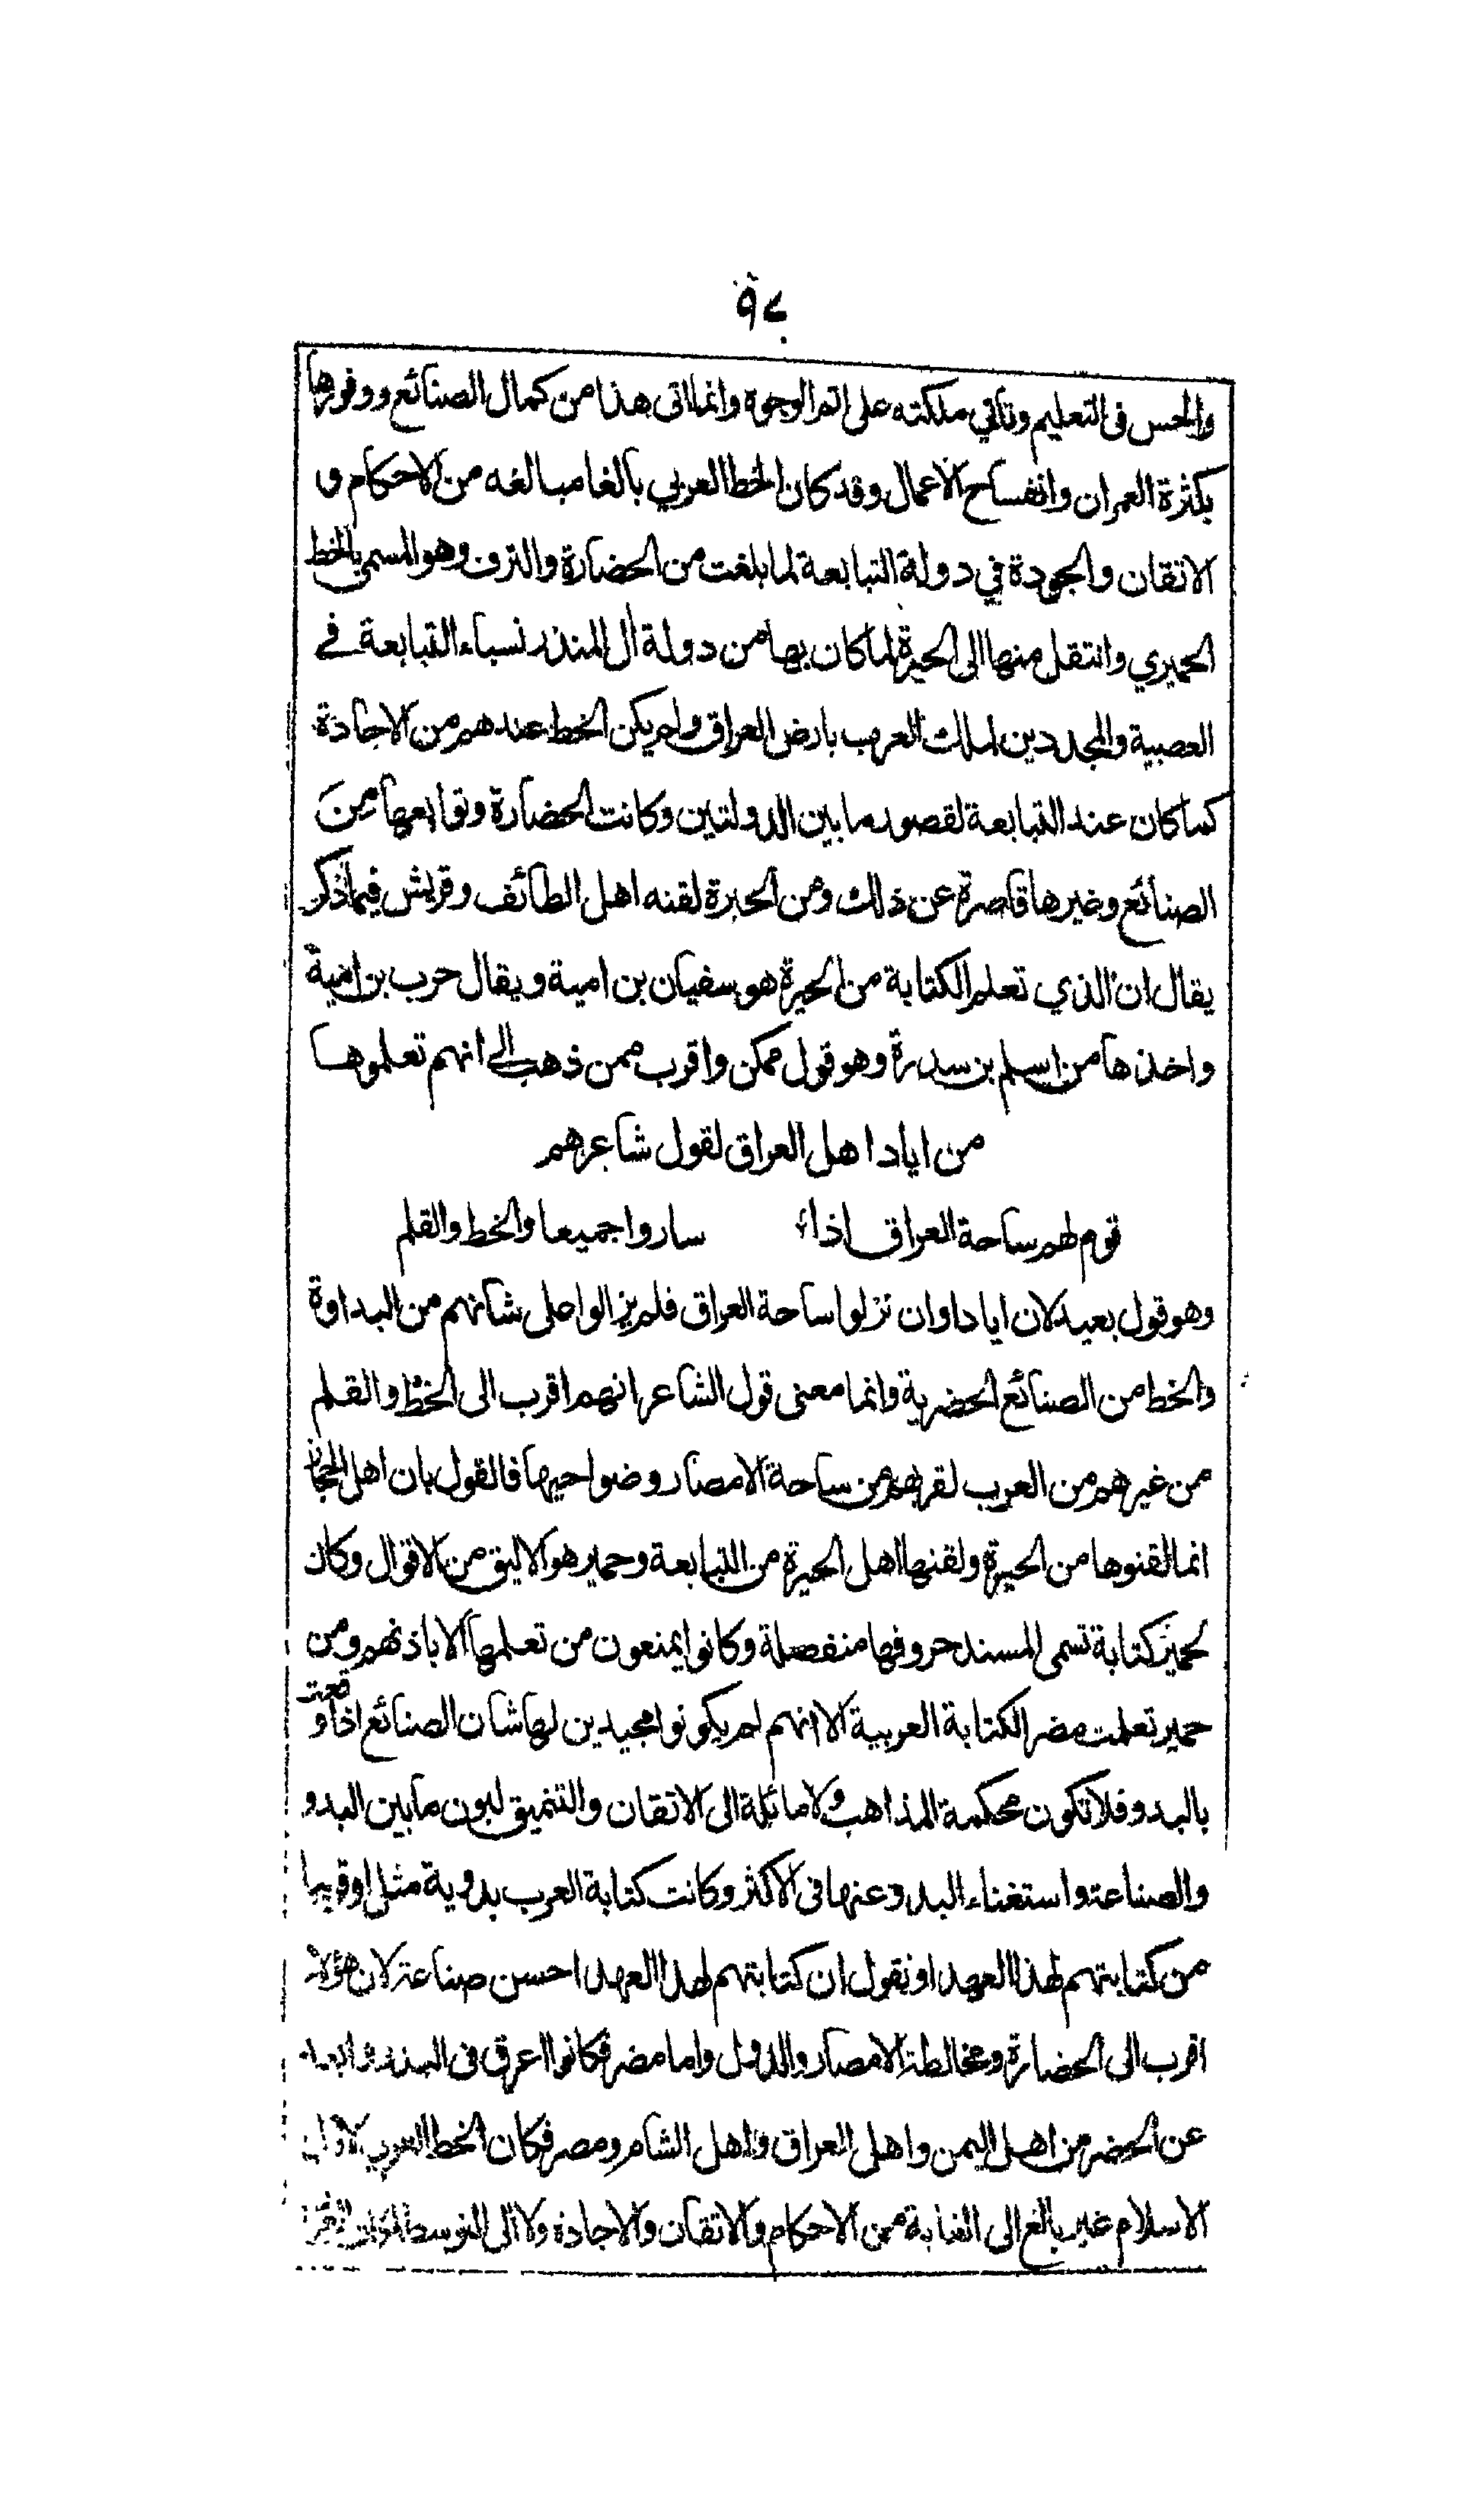 والحس فى التعليم وتأتي ملكته على اتم الوجوه وانما اتى هذا من كمال الصنائع ووفورها
بكثرة العمران وانفساح الاعمال وقد كان الخط العربي بالغا مبالغه من الاحكام و
الاتقان والجودة في دولة التبابعة لما بلغت من الحضارة والترف وهو المسمى بالخط
الحميري وانتقل منها الى الحيرة لما كان بها من دولة ال المنذر نسباء التبابعة في
العصبية والمجددين لملك العرب بارض العراق ولم يكن الخط عندهم من الاجادة
كما كان عند التبابعة لقصور ما بين الدولتين وكانت الحضارة وتوابعها من
الصنائع وغيرها قاصرة عن ذلك ومن الحيرة لقنه اهل الطائف وقريش فيما ذكر
يقال ان الذي تعلم الكتابة من الحيرة هو سفيان بن امية ويقال حرب بن امية
واخذها من اسلم بن سدرة وهو قول ممكن واقرب ممن ذهب الى انهم تعلموها
من اياد اهل العراق لقول شاعرهم
قوم لهم ساحة العراق اذا ساروا جميعا والخط والقلم
وهو قول بعيد لان ايادا وان نزلوا ساحة العراق فلم يزالوا على شانهم من البداوة
والخط من الصنائع الحضرية وانما معنى قول الشاعر انهم اقرب الى الخط والقلم
من غيرهم من العرب لقربهم من ساحة الامصار وضواحيها فالقول بان اهل الحجاز
انما لقنوها من الحيرة ولقنها اهل الحيرة من التبابعة وحمير هو الاليق من الاقوال وكان
لحمير كتابة تسمى المسند حروفها منفصلة وكانوا يمنعون من تعلمها الا باذنهم ومن
حمير تعلمت مضر الكتابة العربية الا انهم لم يكونوا مجيدين لها شان الصنائع اذا وقعت
بالبدو فلا تكون محكمة المذاهب ولا مائلة الى الاتقان والتنميق لبون ما بين البدو
والصناعة واستغناء البدو عنها فى الاكثر وكانت كتابة العرب بدوية مثل او قريبا
من كتابتهم لهذا العهد او نقول ان كتابتهم لهذا العهد احسن صناعة لان هؤلاء
اقرب الى الحضارة ومخالطة الامصار والدول واما مضر فكانوا اعرق فى البدو وابعد
عن الحضر من اهل اليمن واهل العراق واهل الشام ومصر فكان الخط العربي لاول
الاسلام غير بالغ الى الغاية من الاحكام والاتقان والاجادة ولا الى التوسط